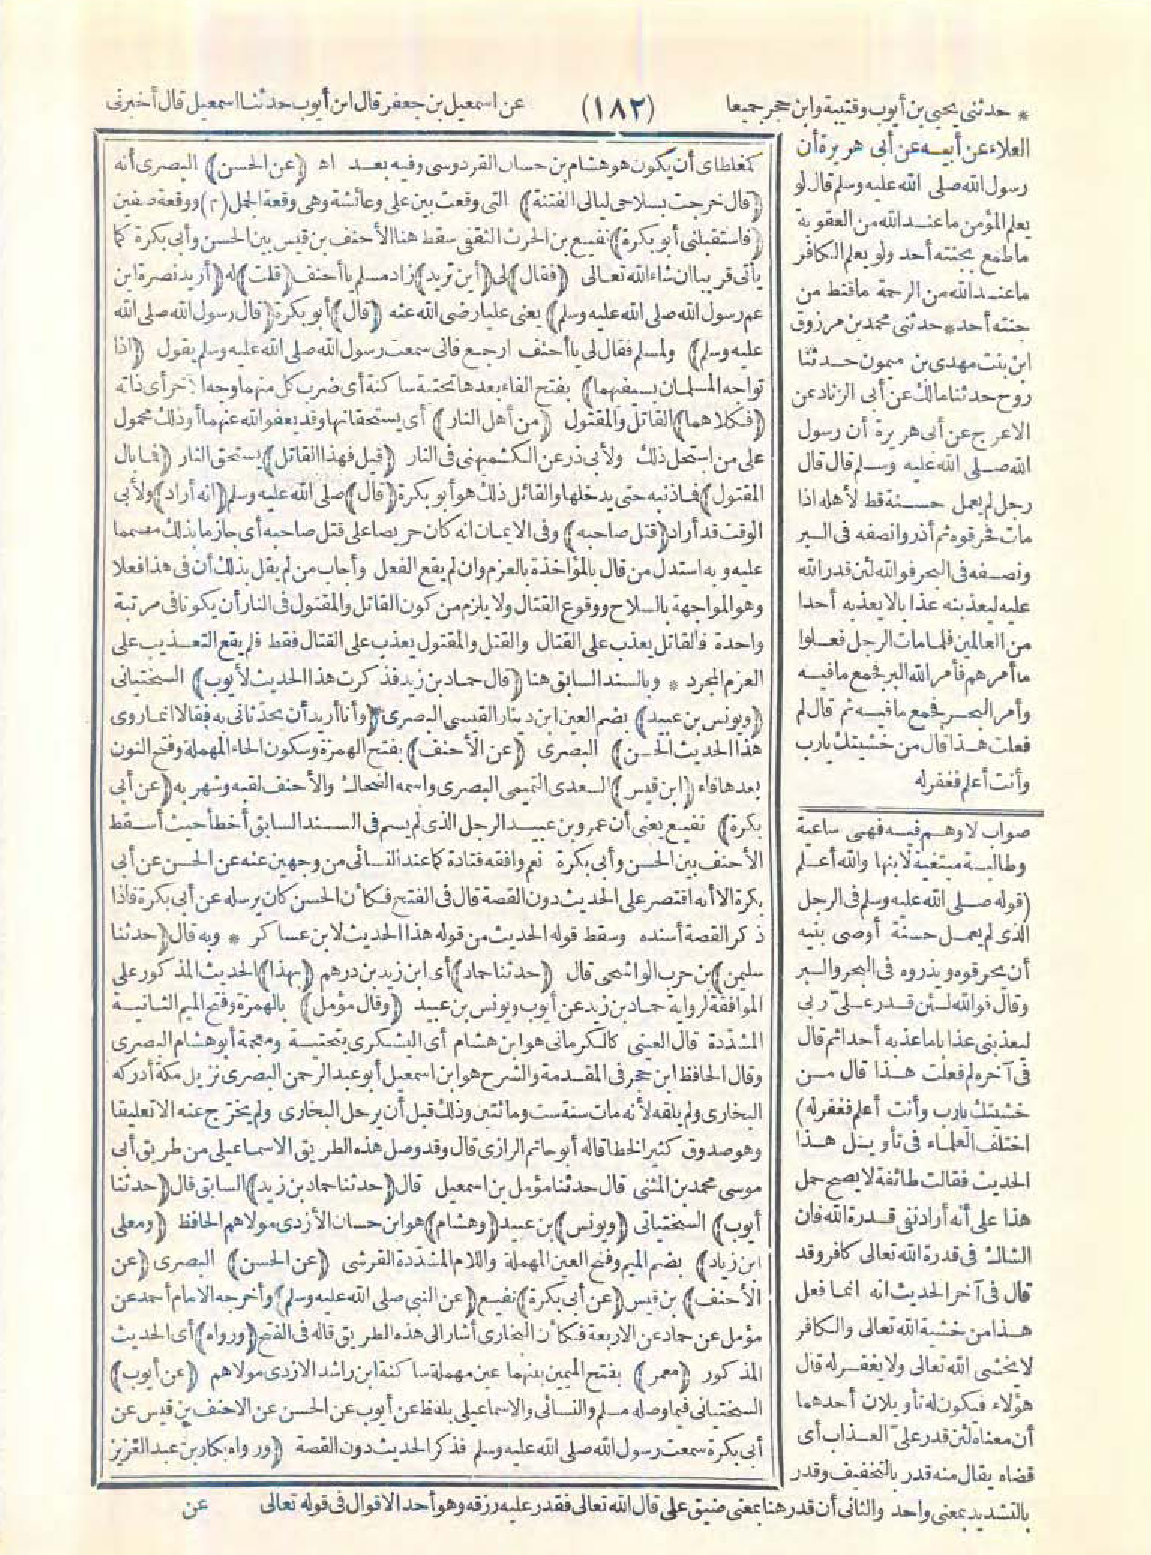 * حدثنى يحيى بن أيوب وقتيبة وابن حجر جميعا (١٨٢) عن اسمعيل بن جعفر قال ابن أيوب حدثنا اسمعيل قال أخبرنى
العلاء عن أبيه عن أبى هريرة أن
رسول الله صلى الله عليه وسلم قال لو
يعلم المؤمن ما عند الله من العقوبة
ما طمع بجنته أحد ولو يعلم الكافر
ما عند الله من الرحمة ما قنط من
جنته أحد * حدثنى محمد بن مرزوق
ابن بنت مهدى بن ميمون حدثنا
روح حدثنا مالك عن أبى الزناد عن
الاعرج عن أبى هريرة أن رسول
الله صلى الله عليه وسلم قال قال
رجل لم يعمل حسنة قط لأهله اذا
مات فحرقوه ثم أذروا نصفه فى البر
ونصفه فى البحر فوالله لئن قدر الله
عليه ليعذبنه عذابا لا يعذبه أحدا
من العالمين فلما مات الرجل فعلوا
ما أمرهم فأمر الله البر فجمع ما فيه
وأمر البحر فجمع ما فيه ثم قال لم
فعلت هذا قال من خشيتك يارب
وأنت أعلم فغفر له
صواب لا وهم فيه فهى ساعية
وطالبة مبتغية لابنها والله أعلم
(قوله صلى الله عليه وسلم فى الرجل
الذى لم يعمل حسنة أوصى بنيه
أن يحرقوه ويذروه فى البحر والبر
وقال فوالله لئن قدر علىّ ربى
ليعذبنى عذابا ما عذبه أحدا ثم قال
فى آخره لم فعلت هذا قال من
خشيتك يارب وأنت أعلم فغفر له)
اختلف العلماء فى تأويل هذا
الحديث فقالت طائفة لا يصح حمل
هذا على أنه أراد نفى قدرة الله فان
الشاك فى قدرة الله تعالى كافر وقد
قال فى آخر الحديث انه انما فعل
هذا من خشية الله تعالى والكافر
لا يخشى الله تعالى ولا يغفر له قال
هؤلاء فيكون له تأويلان أحدهما
أن معناه لئن قدر علىّ العذاب أى
قضاه يقال منه قدر بالتخفيف وقدر
بالتشديد بمعنى واحد والثانى أن قدر هنا بمعنى ضيق على قال الله تعالى فقدر عليه رزقه وهو أحد الاقوال فى قوله تعالى
كمغلطاى أن يكون هو هشام بن حسان القردوسى وفيه بعد اه (عن الحسن) البصرى أنه
(قال خرجت بسلاحى ليالى الفتنة) التى وقعت بين على وعائشة وهى وقعة الجمل (م) ووقعة صفين
(فاستقبلنى أبو بكرة) نفيع بن الحرث الثقفى سقط هنا الأحنف بن قيس بين الحسن وأبى بكرة كما
يأتى قريبا ان شاء الله تعالى (فقال) لى (أين تريد) زاد مسلم يا أحنف (قلت) له (أريد نصرة ابن
عم رسول الله صلى الله عليه وسلم) يعنى عليا رضى الله عنه (قال) أبو بكرة (قال رسول الله صلى الله
عليه وسلم) ولمسلم فقال لى يا أحنف ارجع فانى سمعت رسول الله صلى الله عليه وسلم يقول (اذا
تواجه المسلمان بسيفيهما) بفتح الفاء بعدها تحتية ساكنة أى ضرب كل منهما وجه الآخر أى ذاته
(فكلاهما) القاتل والمقتول (من أهل النار) أى يستحقانها وقد يعفو الله عنهما أو ذلك محمول
على من استحل ذلك ولأبى ذر عن الكشميهنى فى النار (قيل فهذا القاتل) يستحق النار (فما بال
المقتول) فما ذنبه حتى يدخلها والقائل ذلك هو أبو بكرة (قال) صلى الله عليه وسلم (انه أراد) ولأبى
الوقت قد أراد (قتل صاحبه) وفى الايمان انه كان حريصا على قتل صاحبه أى جازما بذلك مصمما
عليه وبه استدل من قال بالمؤاخذة بالعزم وان لم يقع الفعل وأجاب من لم يقل بذلك أن فى هذا فعلا
وهو المواجهة بالسلاح ووقوع القتال ولا يلزم من كون القاتل والمقتول فى النار أن يكونا فى مرتبة
واحدة فالقاتل يعذب على القتال والقتل والمقتول يعذب على القتال فقط فلم يقع التعذيب على
العزم المجرد * وبالسند السابق هنا (قال حماد بن زيد فذكرت هذا الحديث لأيوب) السختيانى
(ويونس بن عبيد) بضم العين ابن دينار القيسى البصرى (وأنا أريد أن يحدثانى به فقالا انما روى
هذا الحديث الحسن) البصرى (عن الأحنف) بفتح الهمزة وسكون الحاء المهملة وفتح النون
بعدها فاء (ابن قيس) السعدى التميمى البصرى واسمه الضحاك والأحنف لقبه وشهر به (عن أبى
بكرة) نفيع يعنى أن عمرو بن عبيد الرجل الذى لم يسم فى السند السابق أخطأ حيث أسقط
الأحنف بين الحسن وأبى بكرة نعم وافقه قتادة كما عند النسائى من وجهين عنه عن الحسن عن أبى
بكرة الا أنه اقتصر على الحديث دون القصة قال فى الفتح فكأن الحسن كان يرسله عن أبى بكرة فاذا
ذكر القصة أسنده وسقط قوله الحديث من قوله هذا الحديث لابن عساكر * وبه قال (حدثنا
سليمن) بن حرب الواشحى قال (حدثنا حماد) أى ابن زيد بن درهم (بهذا) الحديث المذكور على
الموافقة لرواية حماد بن زيد عن أيوب ويونس بن عبيد (وقال مؤمل) بالهمزة وفتح الميم الثانية
المشددة قال العينى كالكرمانى هو ابن هشام أى اليشكرى بتحتية ومعجمة أبو هشام البصرى
وقال الحافظ ابن حجر فى المقدمة والشرح هو ابن اسمعيل أبو عبد الرحمن البصرى نزيل مكة أدركه
البخارى ولم يلقه لأنه مات سنة ست ومائتين وذلك قبل أن يرحل البخارى ولم يخرج عنه الا تعليقا
وهو صدوق كثير الخطا قاله أبو حاتم الرازى قال وقد وصل هذه الطريق الاسماعيلى من طريق أبى
موسى محمد بن المثنى قال حدثنا مؤمل بن اسمعيل قال (حدثنا حماد بن زيد) السابق قال (حدثنا
أيوب) السختيانى (ويونس) بن عبيد (وهشام) هو ابن حسان الأزدى مولاهم الحافظ (ومعلى
ابن زياد) بضم الميم وفتح العين المهملة واللام المشددة القرشى (عن الحسن) البصرى (عن
الأحنف) بن قيس (عن أبى بكرة) نفيع (عن النبى صلى الله عليه وسلم) وأخرجه الامام أحمد عن
مؤمل عن حماد عن الاربعة فكأن البخارى أشار الى هذه الطريق قاله فى الفتح (ورواه) أى الحديث
المذكور (معمر) بفتح الميمين بينهما عين مهملة ساكنة ابن راشد الازدى مولاهم (عن أيوب)
السختيانى فيما وصله مسلم والنسائى والاسماعيلى بلفظ عن أيوب عن الحسن عن الاحنف بن قيس عن
أبى بكرة سمعت رسول الله صلى الله عليه وسلم فذكر الحديث دون القصة (ورواه بكار بن عبد العزيز
عن